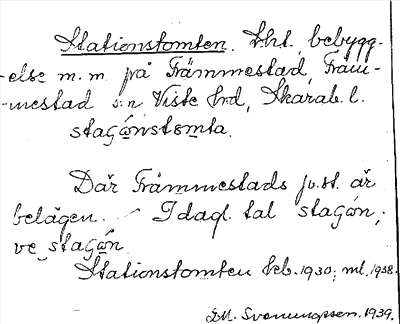 Stationstomten. kht. bebygg-
-else m.m. på Främmestad, Främ-
-mestad s:n Viste hrd, Skarab. l.
stagónstomta.
Där Främmestads jv.st. är
belägen. – I dagl. tal stagón,
ve stagón.
Stationstomten keb. 1930; ml. 1938.
J.M. Svenungsson. 1939.